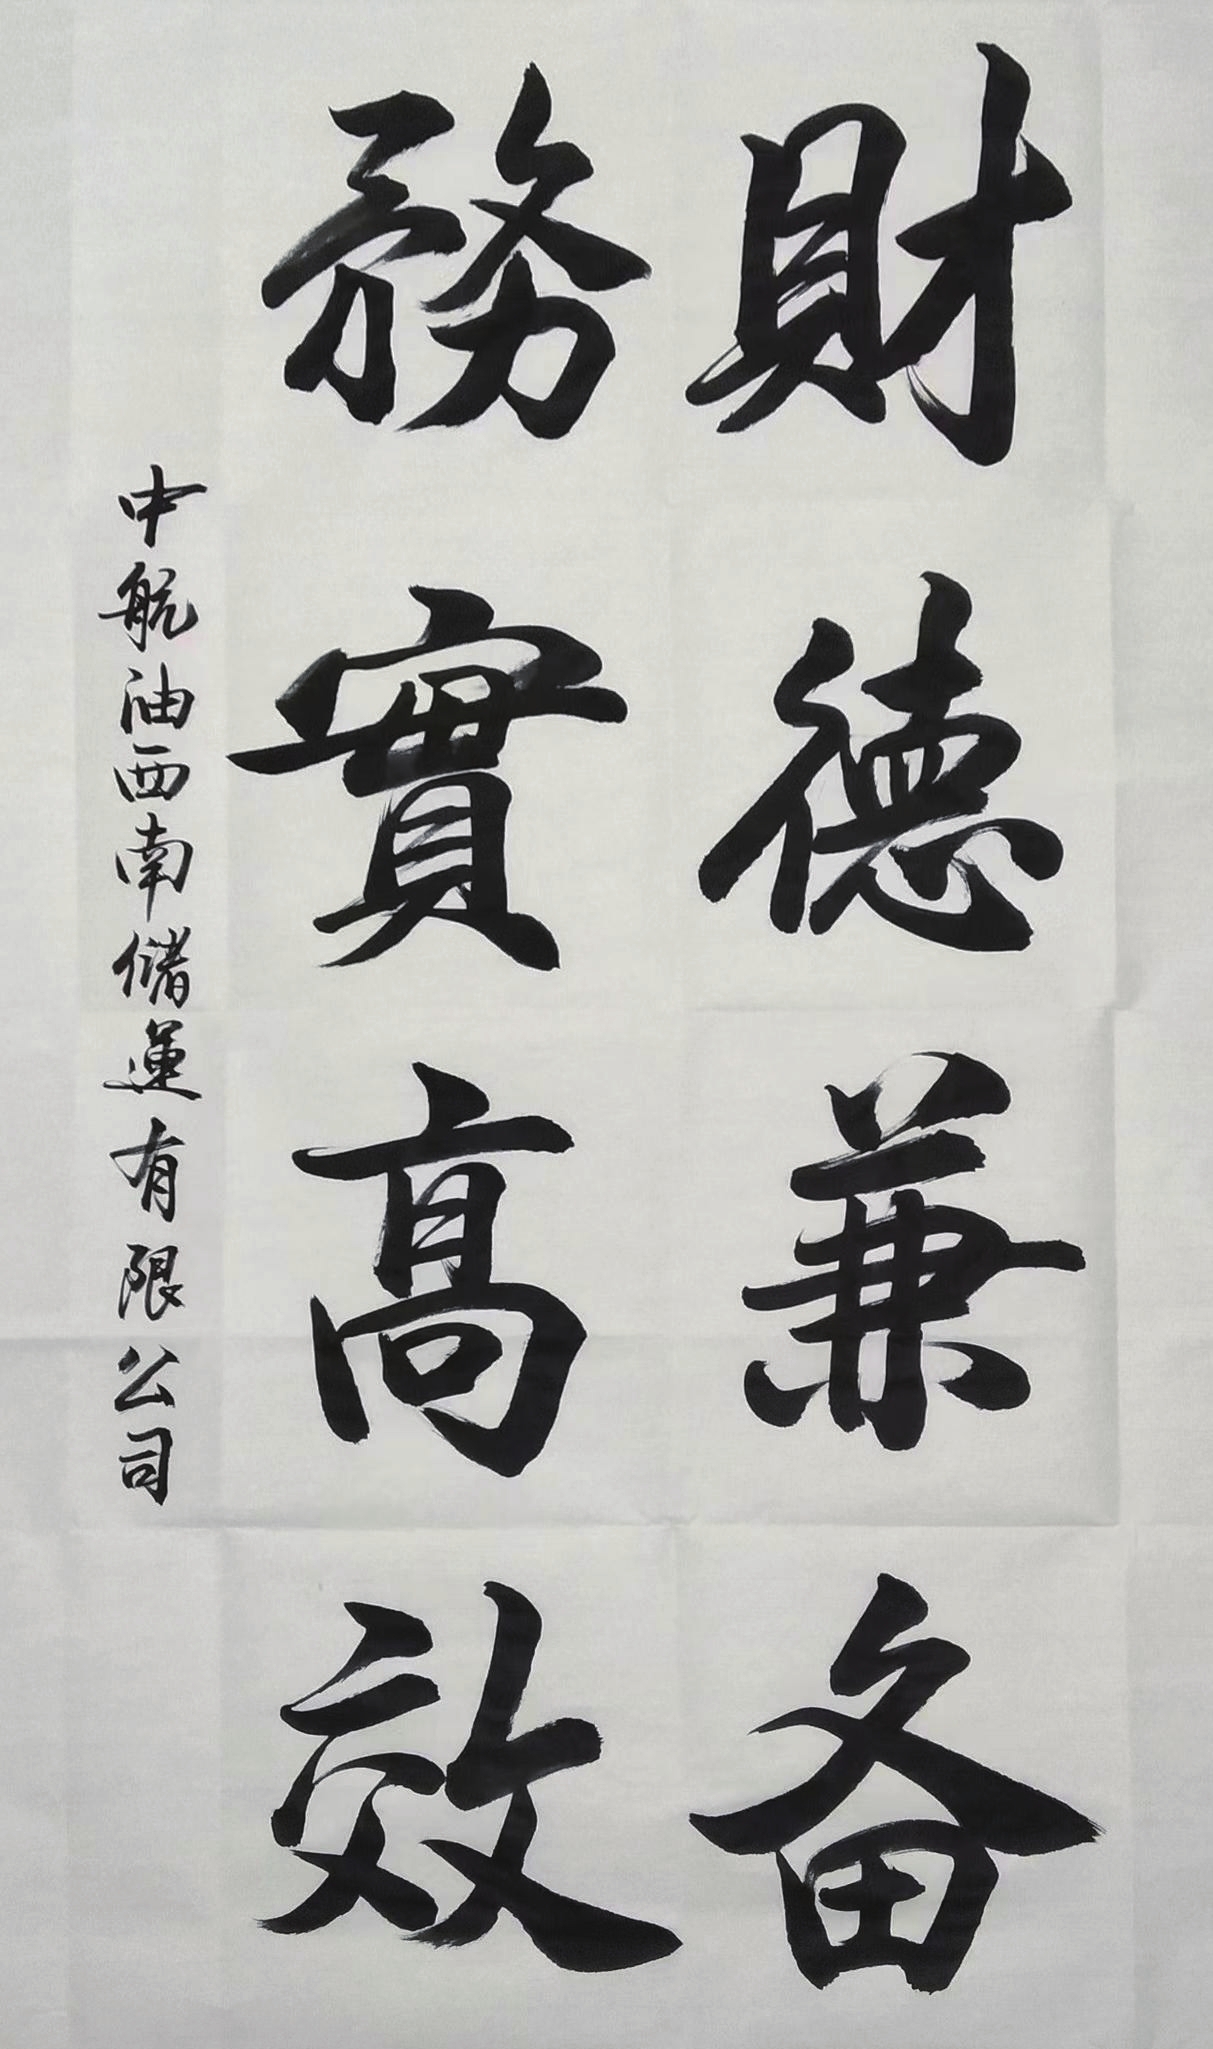 財德兼备
務實高效
中航油西南储運有限公司